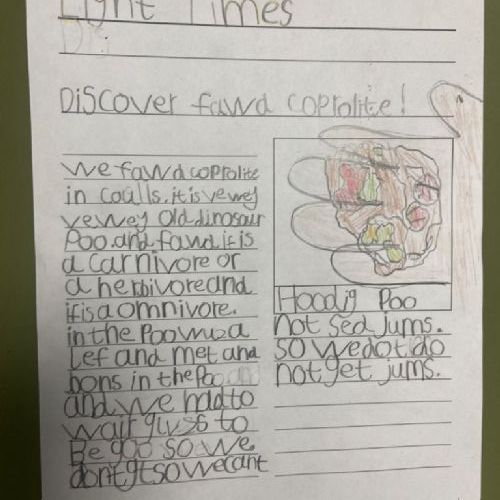 Light Times
By
Discover fawd coprolite!
We fawd coprolite
in coalls. it is vewey
vewey old dinosaur
Poo. and fawd if is
a carnivore or
a herbivore and
if is a omnivore.
in the Poo wuz a
Lef and met and
bons in the Poo and
and we had to
wair gluvs to
Be
so we
dont
so we cant
Holdig Poo
not sed jums.
so we dot do
not get jums.